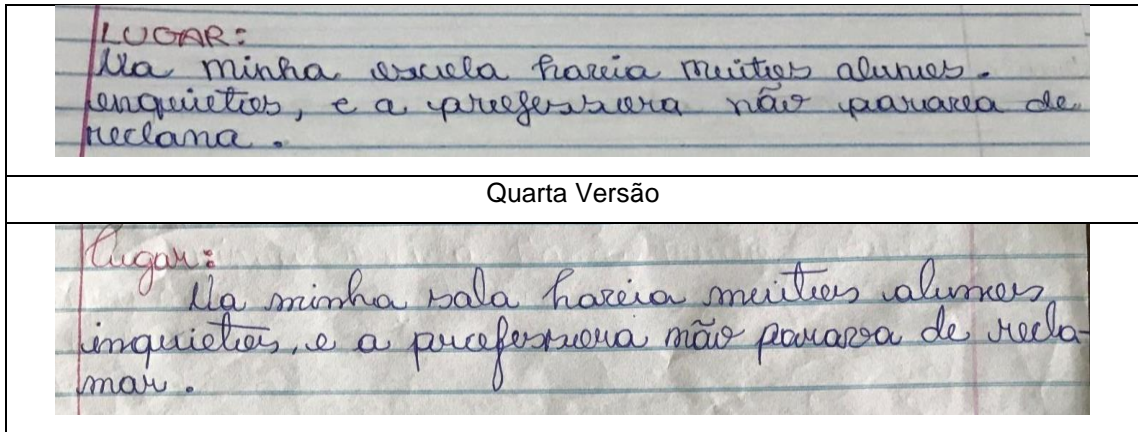 LUGAR:
Na minha escuela havia muitos alunos.
enquietos, e a professora não parava de
reclama.
Quarta Versão
lugar:
Na minha sala havia muitos alunos
inquietos, e a professora não parava de recla-
mar.